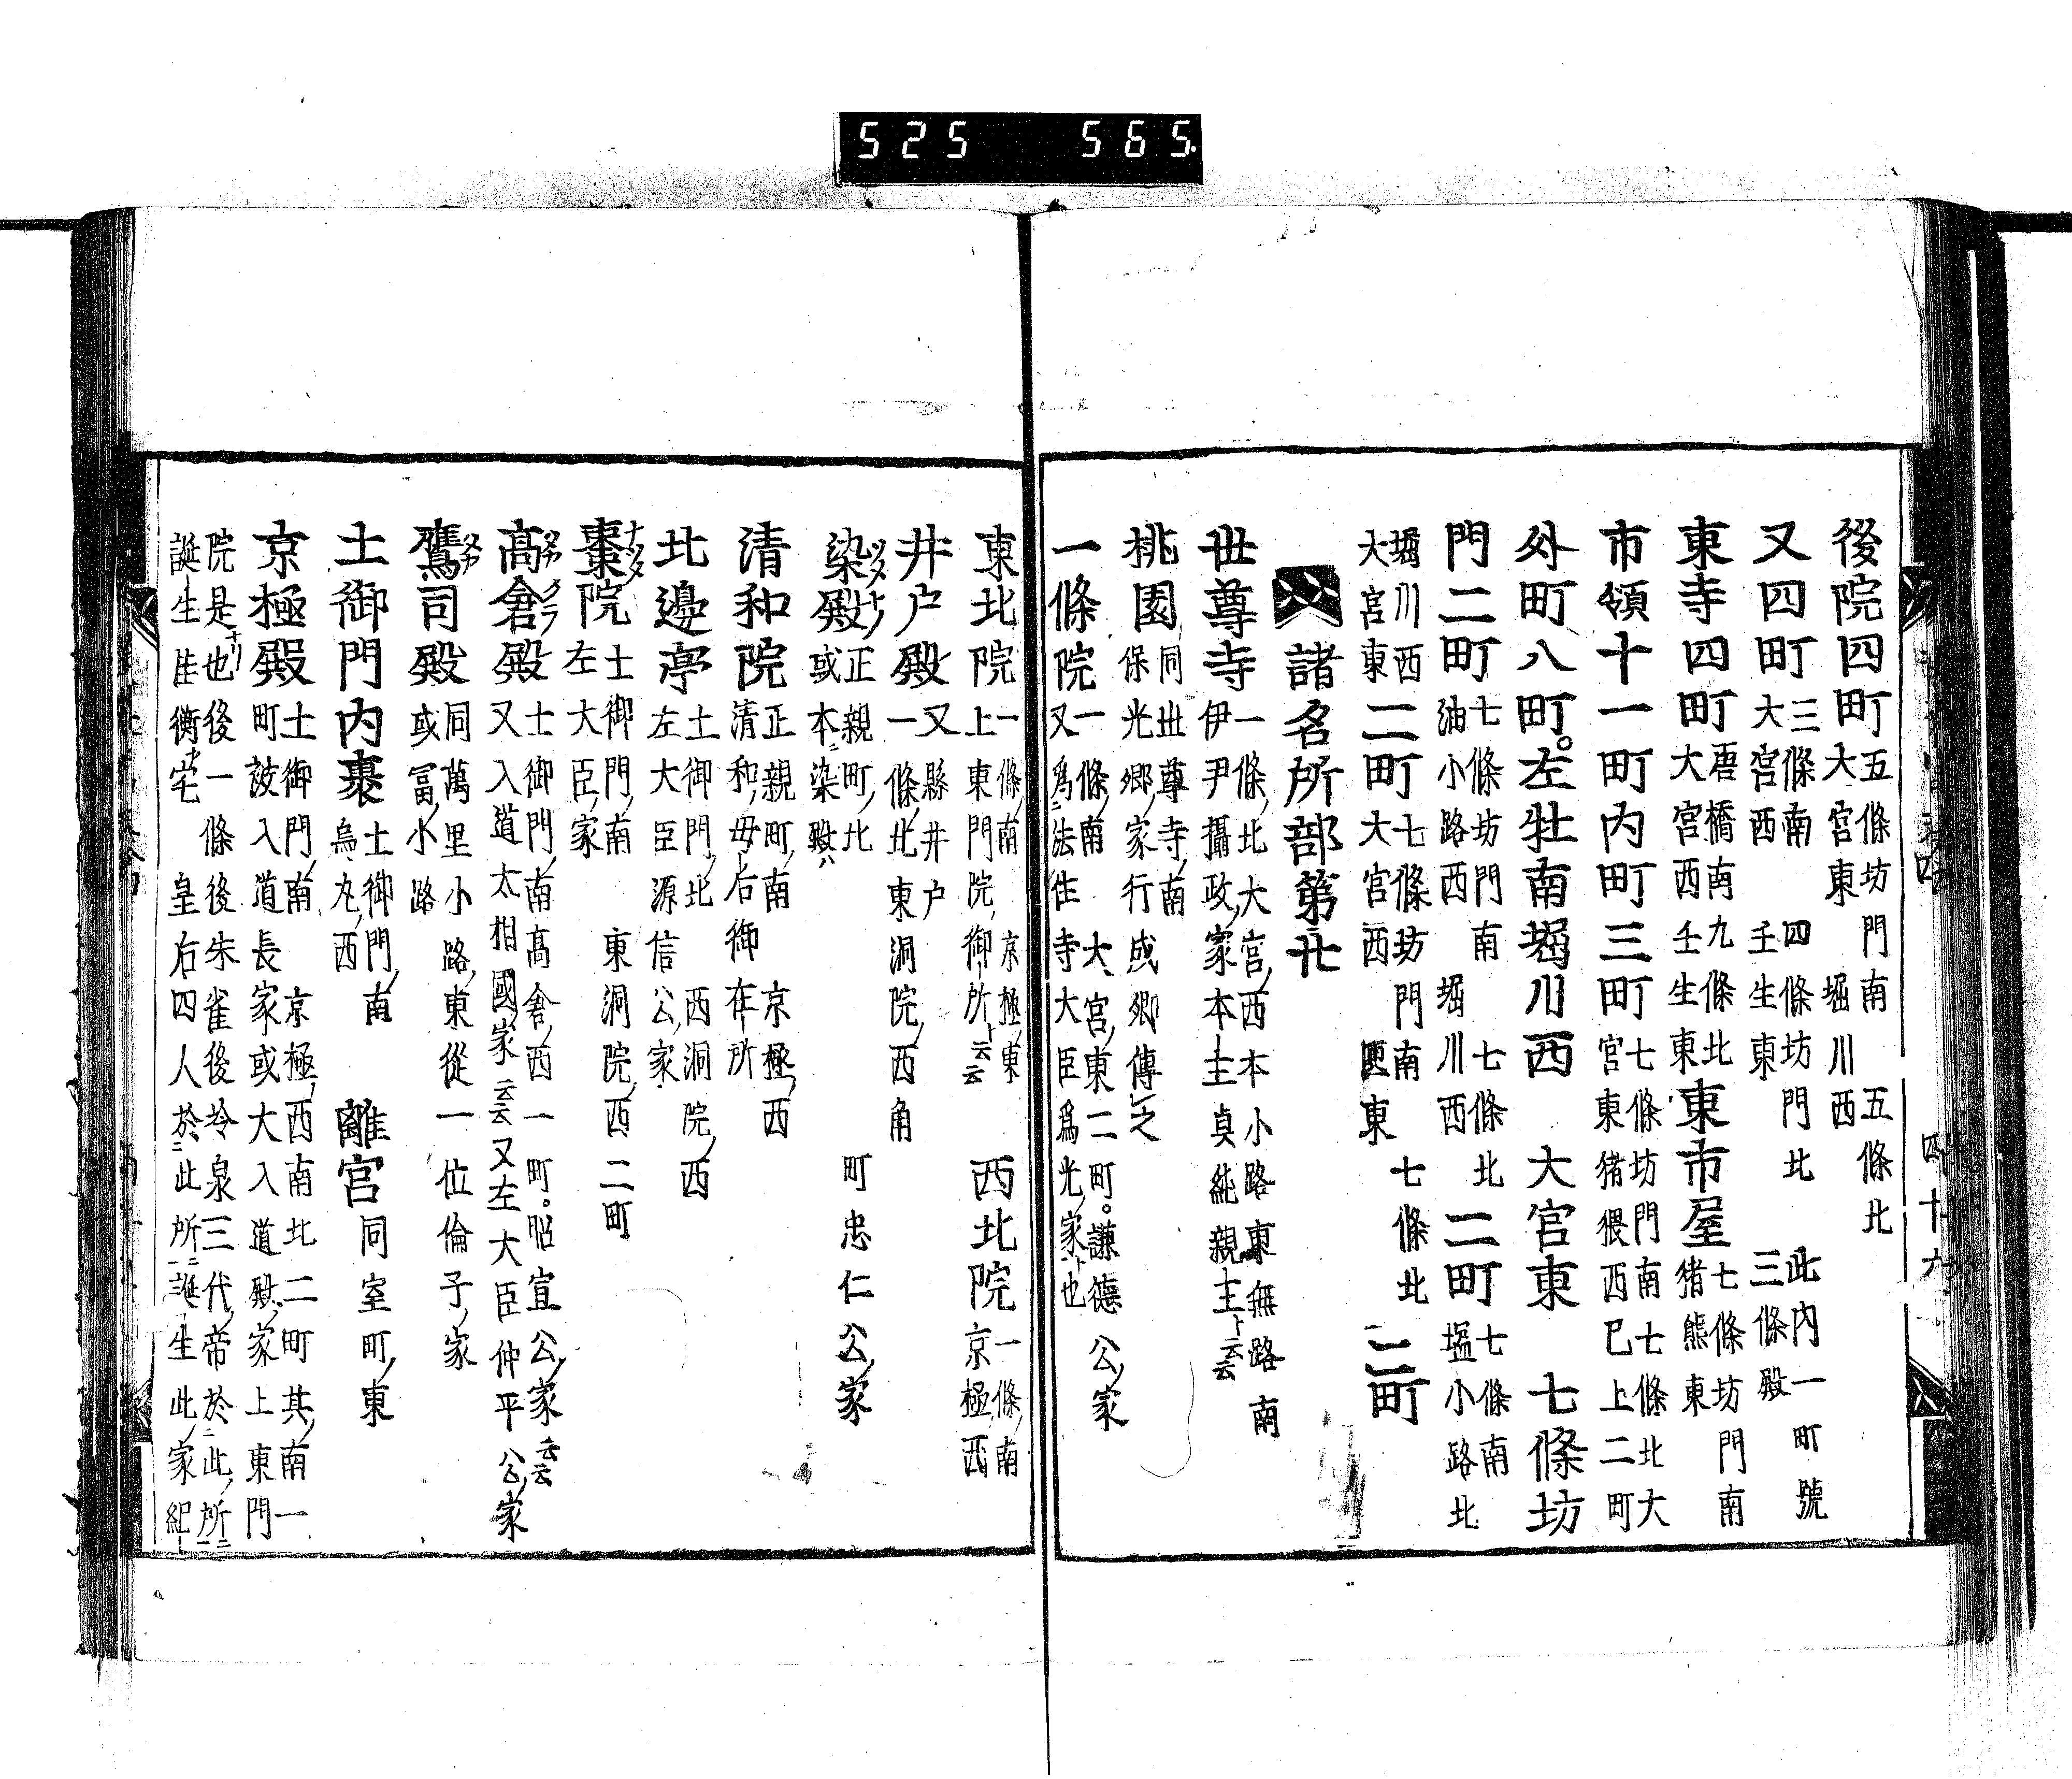 525 565.
後院四町 五條坊門南 五條北 大宮東 堀川西
又四町 三條南 四條坊門北 此内一町號 大宮西 壬生東 三條殿
東寺四町 唐橋南九條北 大宮西壬生東 東市屋 七條坊門南 猪熊東
市領十一町内町三町 七條坊門南七條北大 宮東猪猥西巳上二町
外町八町。左牡南堀川西 大宮東 七條坊
門二町 七條坊門南 七條北 油小路西 堀川西 二町 七條南 塩小路北
堀川西 大宮東 二町 七條坊門南 七條北 大宮西 匣東 二町
諸名所部第廿
世尊寺 一條北大宮西本小路東無路南 伊尹攝政家本主貞純親主ト云云
桃園 同世尊寺南 保光郷家行成卿傳之
一條院 一條南 大宮東二町。謙德公家 又爲法住寺大臣爲光家也
東北院 一條南 京極東 上東門院御所ト云云 西北院 一條南 京極西
井戸殿 又縣井戸 一條北東洞院西角
染殿 正親町北 或本染殿ハ 町忠仁公家
清和院 正親町南 京極西 清和母后御在所
北邊亭 土御門北 西洞院西 左大臣源信公家
棗院 土御門南 東洞院西二町 左大臣家
高倉殿 土御門南高倉西一町。昭宣公家云云 又入道太相國家云云又左大臣仲平公家
鷹司殿 同萬里小路東從一位倫子家 或冨小路
土御門内裏 土御門南 烏丸西 離宮 同室町東
京極殿 土御門南 京極西南北二町其南一 町被入道長家或大入道殿家上東門
院是也後一條後朱雀後冷泉三代帝於此所
誕生隹衡宅 皇后四人於此所誕生此家紀
四十六